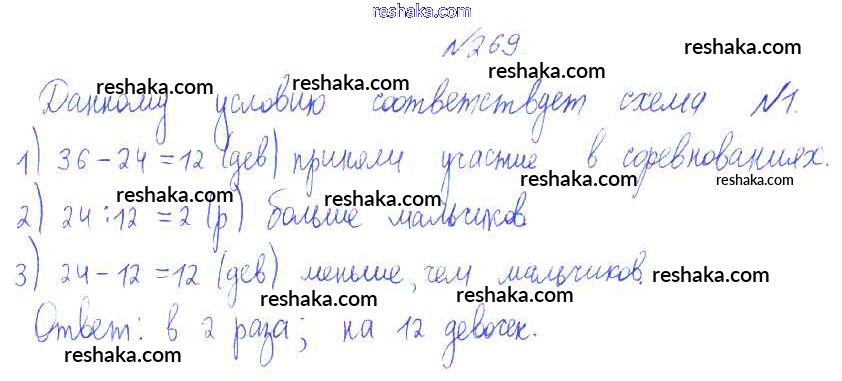 reshaka.com
№269.
reshaka.com
reshaka.com
reshaka.com
reshaka.com
Данному условию соответствует схема №1.
reshaka.com
reshaka.com
1) 36-24=12 (дев) приняли участие в соревнованиях.
reshaka.com
reshaka.com
reshaka.com
reshaka.com
2) 24:12=2 (р) больше мальчиков
reshaka.com
reshaka.com
3) 24-12=12 (дев) меньше, чем мальчиков.
reshaka.com
reshaka.com
reshaka.com
Ответ: в 2 раза; на 12 девочек.
reshaka.com
reshaka.com